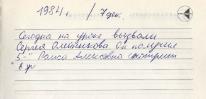 1984 г. / 7 дек.
Сегодня на уроке вызвали
Сергея Олейникова. Он получил
5-" Раиса Алексеевна
в